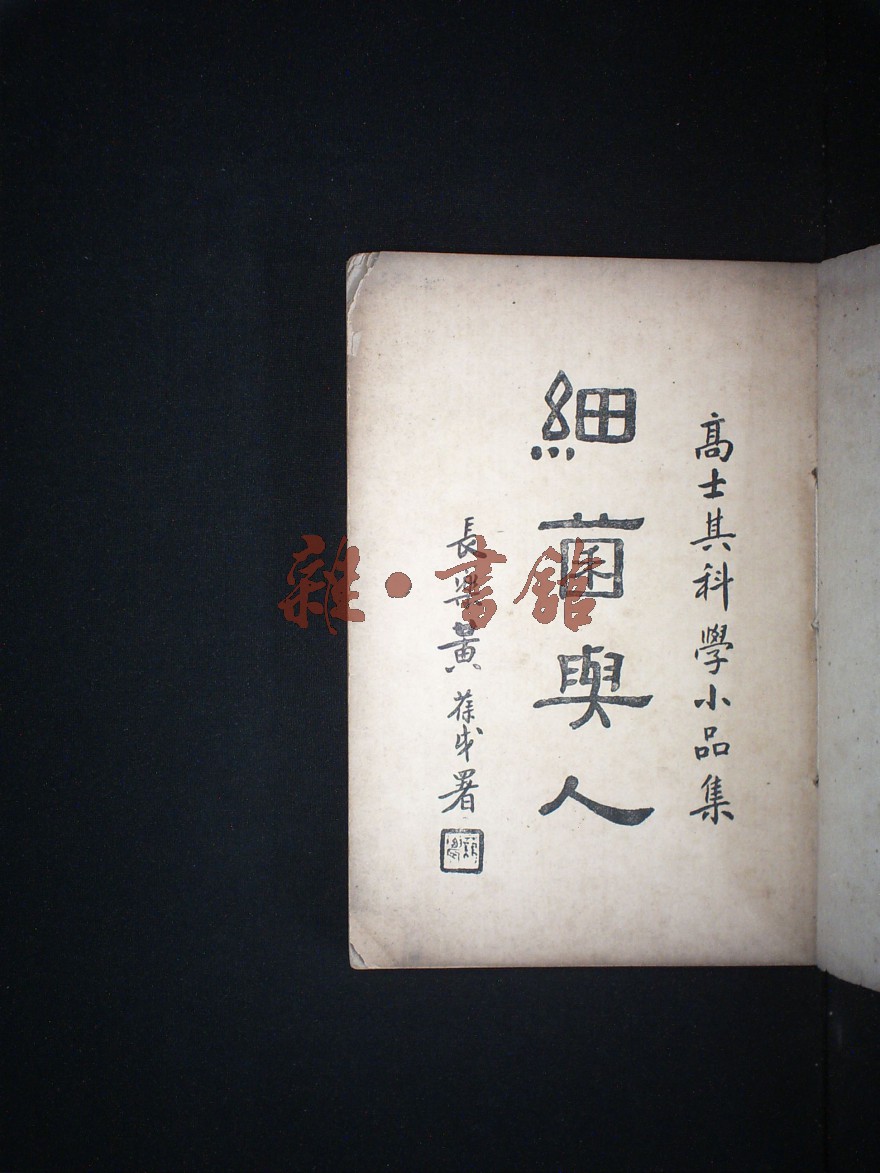 高士其科學小品集
細菌與人
長樂黃葆戉署
雜·書館